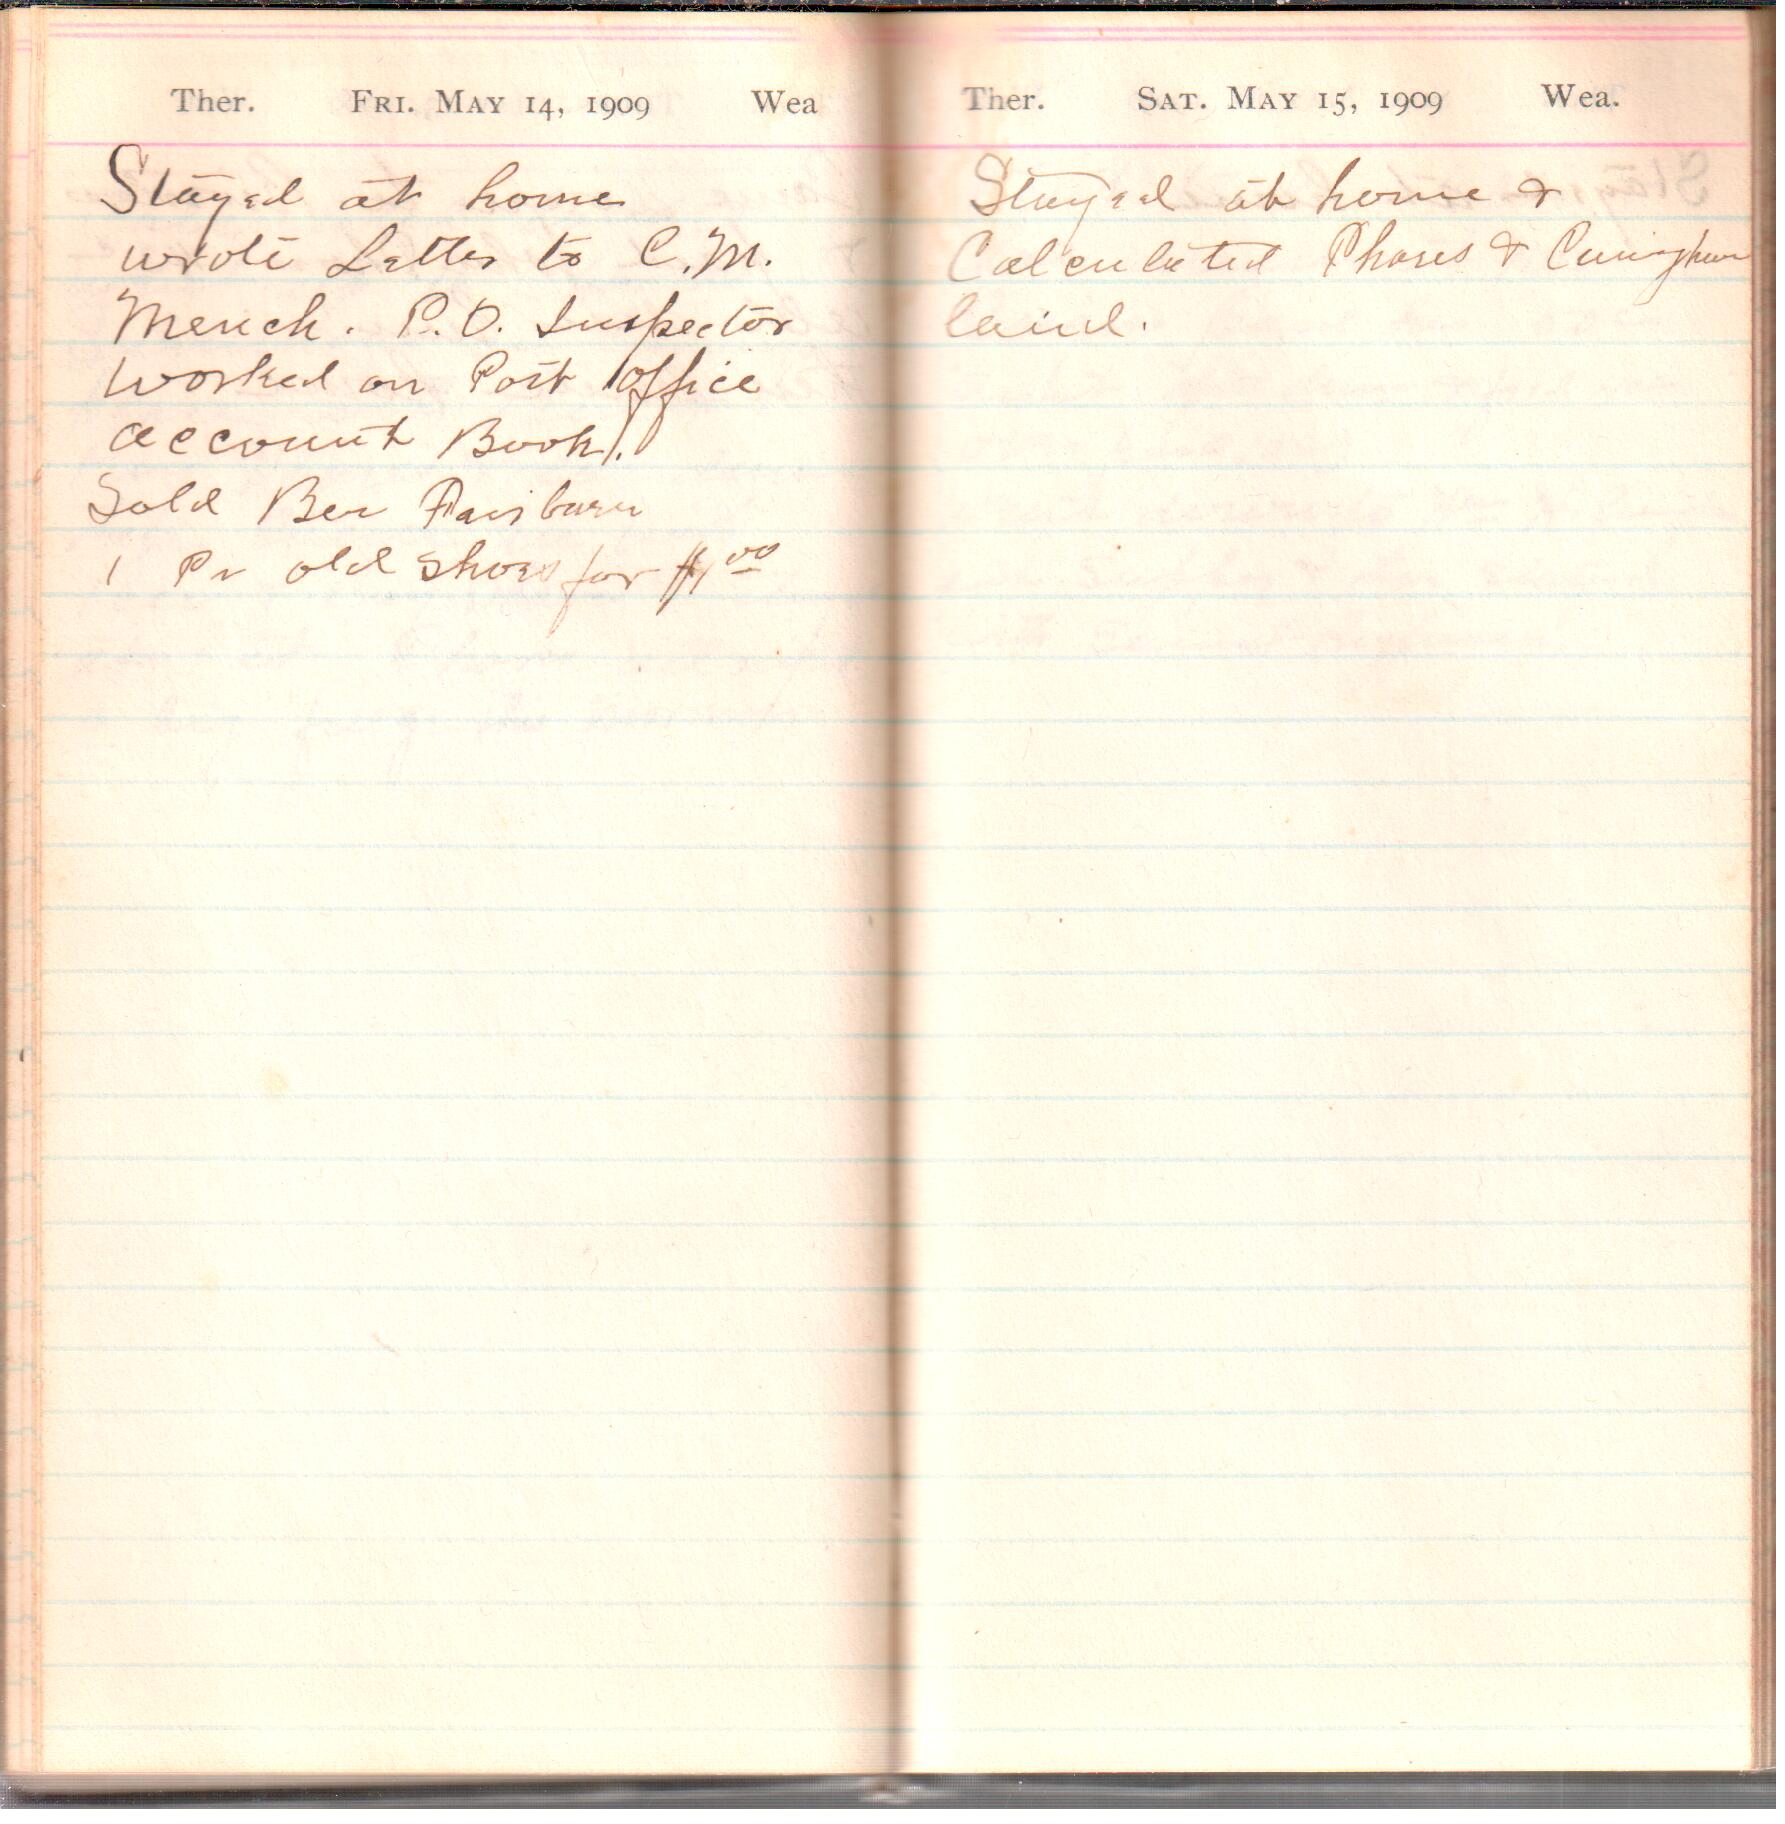 Ther. FRI. MAY 14, 1909 Wea
Stayed at home
wrote Letter to C.M.
P.O. Inspector
worked on Post office
account Book.
Sold Ben Fairburn
1 Pr old shoes for $1.00
Ther. SAT. MAY 15, 1909 Wea.
Stayed at home &
Calculated Phares &
land.